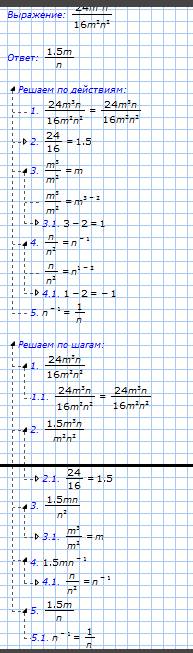 Выражение: 24m³n / 16m²n²
Ответ: 1.5m / n
Решаем по действиям:
1. 24m³n / 16m²n² = 24m³n / 16m²n²
2. 24 / 16 = 1.5
3. m³ / m² = m
m³ / m² = m³⁻²
3.1. 3 - 2 = 1
4. n / n² = n⁻¹
n / n² = n¹⁻²
4.1. 1 - 2 = - 1
5. n⁻¹ = 1 / n
Решаем по шагам:
1. 24m³n / 16m²n²
1.1. 24m³n / 16m²n² = 24m³n / 16m²n²
2. 1.5m³n / m²n²
2.1. 24 / 16 = 1.5
3. 1.5mn / n²
3.1. m³ / m² = m
4. 1.5mn⁻¹
4.1. n / n² = n⁻¹
5. 1.5m / n
5.1. n⁻¹ = 1 / n